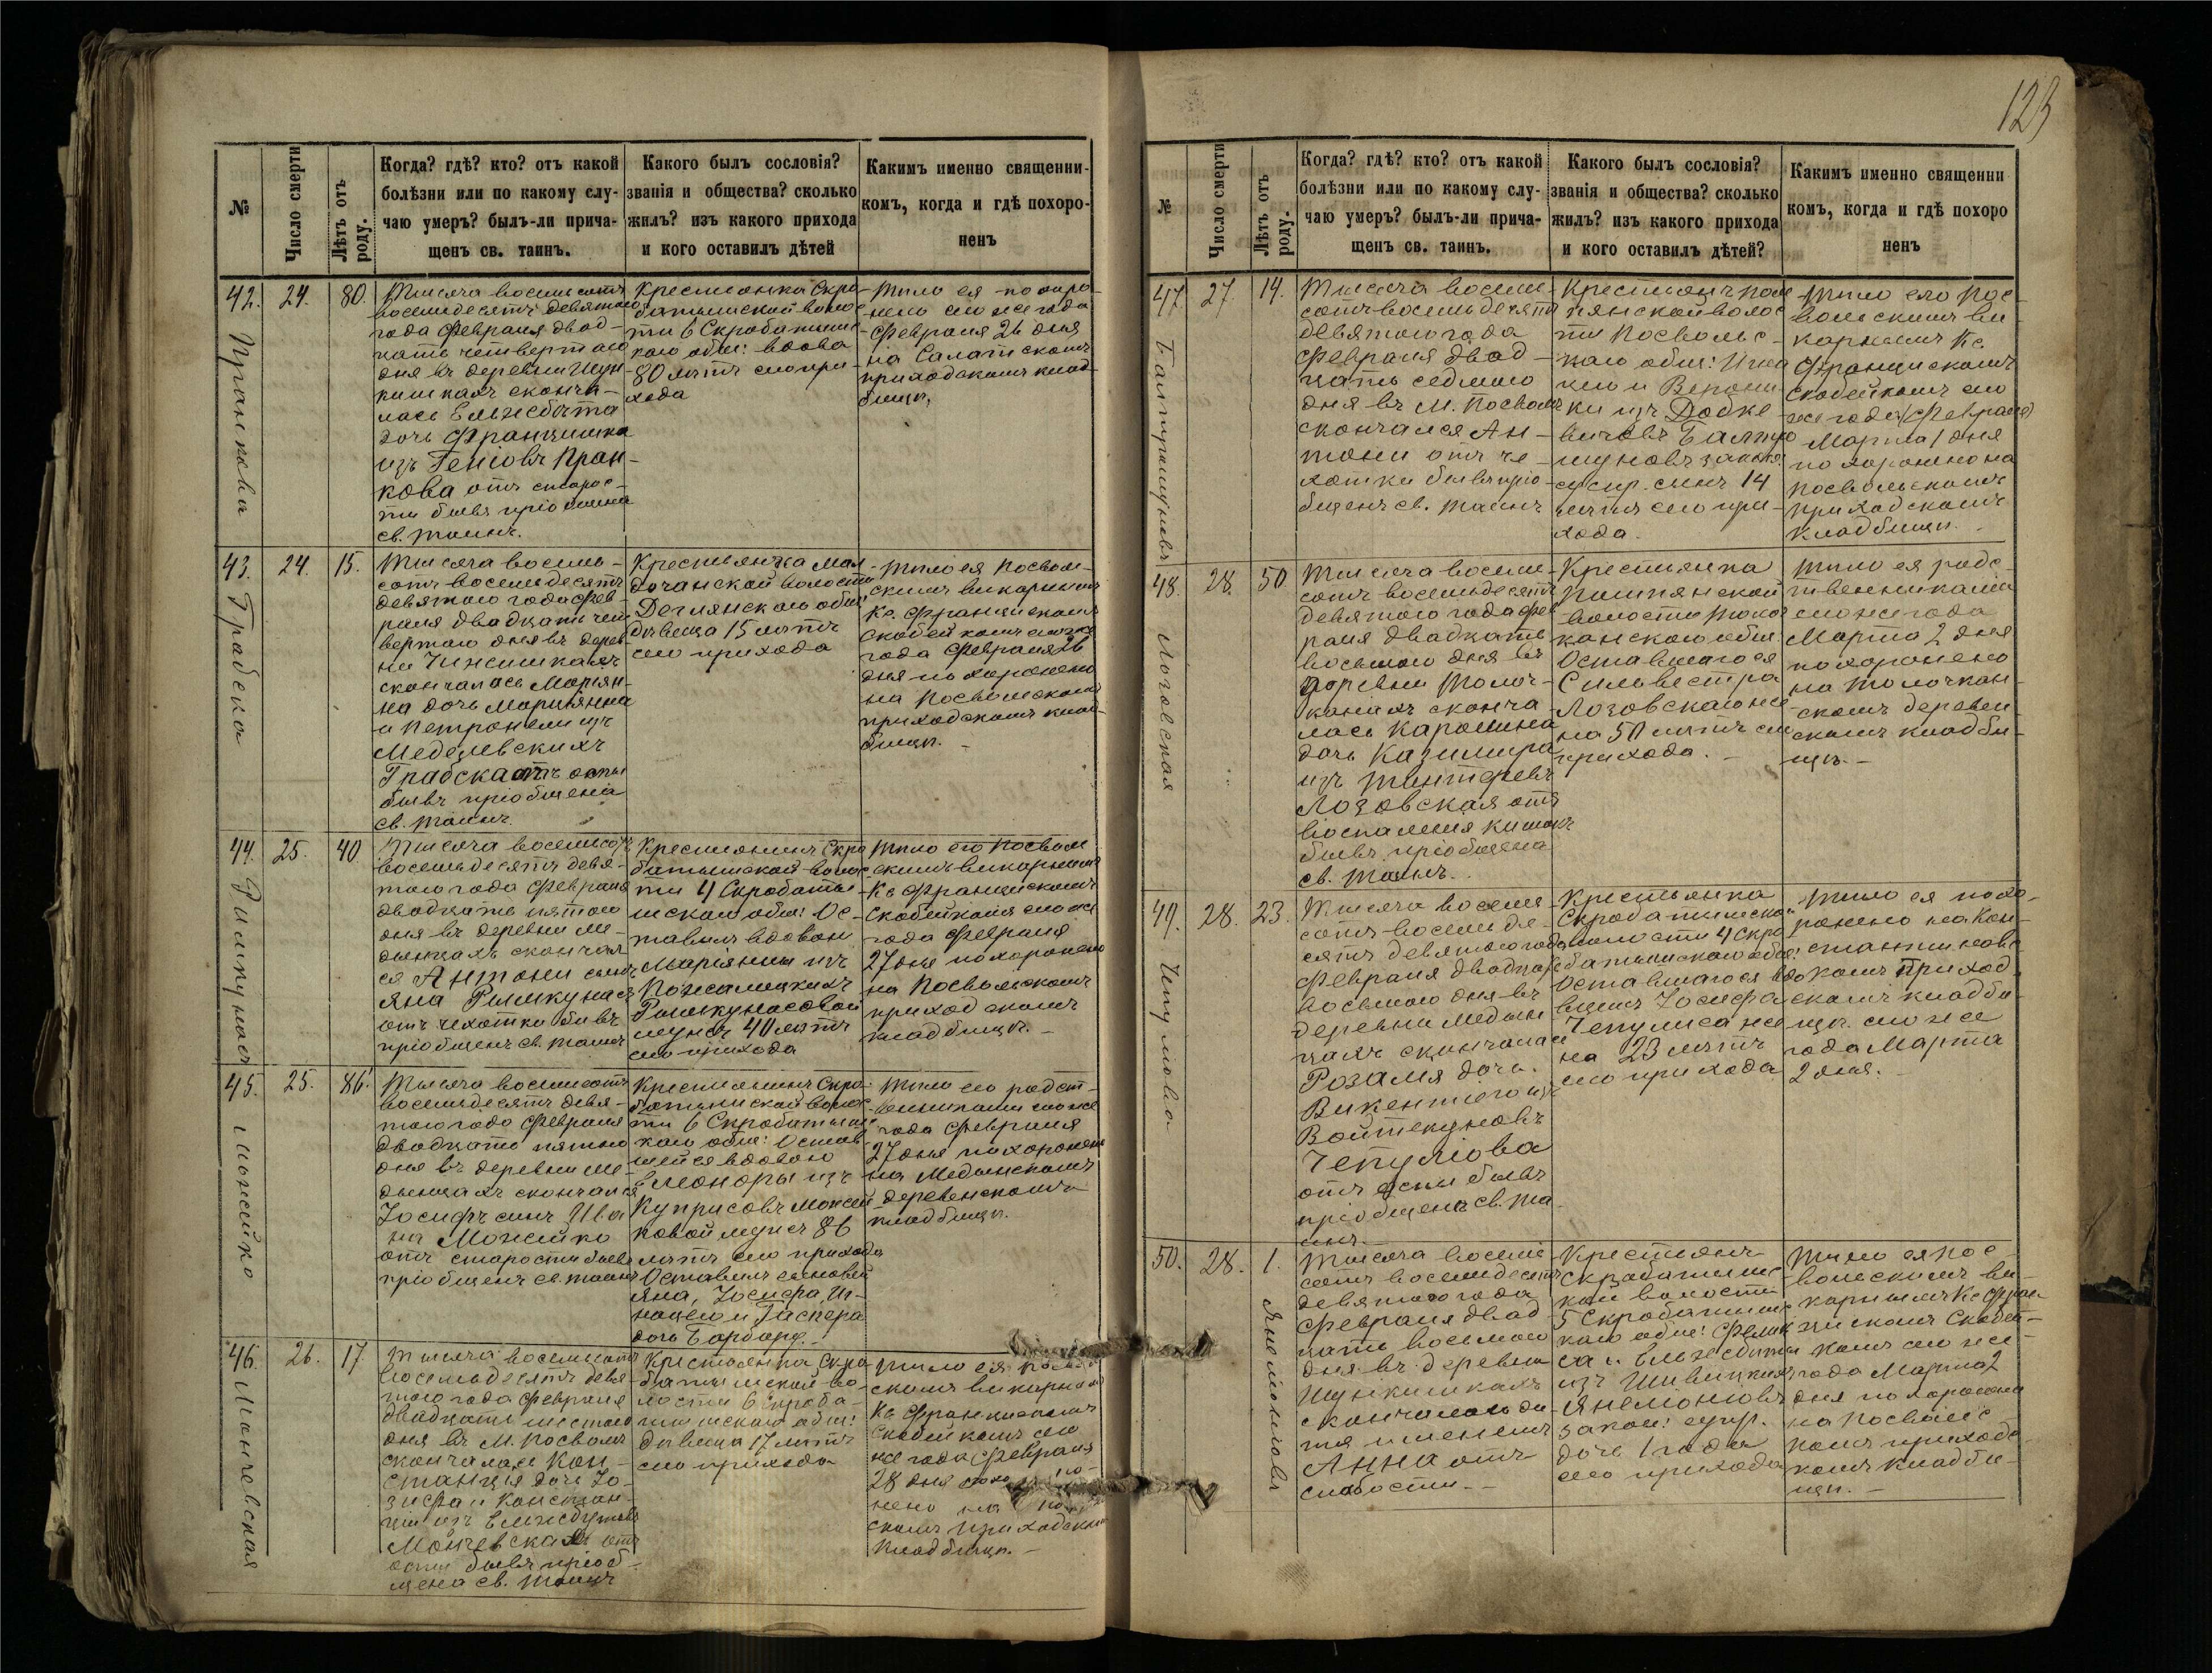 №
Число смерти
Лѣтъ отъ роду.
Когда? гдѣ? кто? отъ какой
болѣзни или по какому слу-
чаю умеръ? былъ-ли прича-
щенъ св. таинъ.
Какого былъ сословія?
званія и общества? сколько
жилъ? изъ какого прихода
и кого оставилъ дѣтей
Какимъ именно священни-
комъ, когда и гдѣ похоро-
ненъ
42.
Пранкова
24.
80.
Тысяча восемьсотъ
восемьдесятъ девятого
года Февраля двад-
цать четвертаго
дня въ деревни
кишкахъ сконча-
лась Ельжбета
дочь Францишка
изъ Геніовъ Пран-
кова отъ старос-
ти бывъ пріобщена
св. таинъ.
Крестьянка Скро-
батишской волос
ти 6 Скробатишс
каго общ: вдова
80 лѣтъ сего при-
хода
Тѣло ея похоро-
нено сего же года
Февраля 26 дня
на Салатскомъ
приходскомъ клад-
бищѣ.
43.
Грабска
24.
15.
Тысяча восемь-
сотъ восемьдесятъ
девятого года Фев-
раля двадцать чет
вертаго дня въ дерев
ни
скончалась Марьян-
на дочь Мартина
и Петронели изъ
Медзелевскихъ
Грабска отъ оспы
бывъ пріобщена
св. таинъ.
Крестьянка
волости
общ:
дѣвица 15 лѣтъ
сего прихода
Тѣло ея Посволь-
скимъ викарнымъ
Кс. Францискомъ
Скобейкомъ сего же
года Февраля 26
дня похоронено
на Посвольскомъ
приходскомъ клад-
бищѣ. -
44.
Римкунасъ
25.
40
Тысяча восемьсотъ
восемьдесятъ девя-
того года Февраля
двадцать пятого
дня въ деревни Ме-
дынцахъ скончал
ся Антони сынъ
Яна Римкунасъ
отъ чехотки бывъ
пріобщенъ св. таинъ
Крестьянинъ Скро
батишской волос-
ти 4 Скробати
шскаго общ: Ос-
тавилъ вдовою
Марьянны изъ
Римкунасовой
мужъ 40 лѣтъ
сего прихода
Тѣло его Посволь
скимъ викарнымъ
Кс Францискомъ
Скобейкомъ сего же
года Февраля
27 дня похоронено
на Посвольскомъ
приходскомъ
кладбищѣ. -
45.
Можейко
25.
86.
Тысяча восемьсотъ
восемьдесятъ девя-
того года Февраля
двадцать пятого
дня въ деревни Ме-
дынцахъ скончался
Іосифъ сынъ Ива
на Можейко
отъ старости бывъ
пріобщенъ св. таинъ
Крестьянинъ Скро-
батишской волос-
ти 6 Скробатишс
каго общ: Остав
шейся вдовою
Элеоноры изъ
Куприсовъ Можей
ковой мужъ 86
лѣтъ сего прихода
Оставилъ сыновей
Яна, Іосифа, Иг-
нацего и Гаспера
дочь Барбару.
Тѣло его родст-
венниками сего же
года Февраля
27 дня похоронено
на Медынскомъ
деревенскомъ
кладбищѣ.
46.
26.
17.
Тысяча восемьсотъ
восемьдесятъ девя-
того года Февраля
двадцать шестого
дня въ М. Посволѣ
скончалась Кон-
станція дочь Іо-
зефа и Констан-
ціи изъ
отъ
оспы бывъ пріоб-
щена св. таинъ
Крестьянка Скро-
батишской во-
лости 6 Скроба-
тишскаго общ:
дѣвица 17 лѣтъ
сего прихода
Тѣло ея
скимъ викарнымъ
Кс Францискомъ
Скобейкомъ сего
же года Февраля
28 дня похоро-
нено на
скомъ приходскомъ
кладбищѣ. -
123
№
Число смерти
Лѣтъ отъ роду.
Когда? гдѣ? кто? отъ какой
болѣзни или по какому слу-
чаю умеръ? былъ-ли прича-
щенъ св. таинъ.
Какого былъ сословія?
званія и общества? сколько
жилъ? изъ какого прихода
и кого оставилъ дѣтей?
Какимъ именно священни
комъ, когда и гдѣ похоро
ненъ
47.
27.
14.
Тысяча восемь-
сотъ восемьдесятъ
девятого года
Февраля двад-
цать седмого
дня въ М. Посволѣ
скончался Ан-
тони отъ че-
хотки бывъ пріо-
бщенъ св. таинъ
Крестьянъ
волос
ти Посвольс-
каго общ:
и Верони-
ки изъ
супр. сынъ 14
лѣтъ сего при-
хода.
Тѣло его Пос-
вольскимъ ви-
карнымъ Кс.
Францискомъ
Скобейкомъ сего
же года (Февраля)
Марта 1 дня
похоронено на
Посвольскомъ
приходскомъ
кладбищѣ.
48.
Лозовская
28.
50
Тысяча восемь-
сотъ восемьдесятъ
девятого года Фев
раля двадцать
восьмого дня въ
деревни Толоч-
канцахъ сконча-
лась Каролина
дочь Казимира
изъ
Лозовская отъ
воспаленія кишекъ
бывъ пріобщена
св. таинъ.
Крестьянка
волости
общ.
Оставшагося
Сильвестра
Лозовскаго же
на 50 лѣтъ сего
прихода. -
Тѣло ея родс-
твенниками
сего же года
Марта 2 дня
похоронено
на Толочкан-
скомъ деревен-
скомъ кладби-
щѣ. -
49.
Чепулова
28.
23.
Тысяча восемь
сотъ восемьде-
сятъ девятого года
Февраля двадцать
восьмого дня въ
деревни Медын
цахъ скончалась
Розалія дочь
Викентіего изъ
Войтекуновъ
Чепулова
отъ оспы бывъ
пріобщена св. та
инъ.
Крестьянка
Скробатишской
волости 4 Скро
батишскаго общ:
Оставшагося вдо
вцемъ Іосифа
Чепулиса же
на 23 лѣтъ
сего прихода
Тѣло ея похо-
ронено на Кон-
стантиновс
комъ приход
скомъ кладби-
щѣ. сего же
года Марта
2 дня.
50.
28.
1.
Тысяча восемь
сотъ восемьдесятъ
девятого года
Февраля двад
цать восьмого
дня въ деревни
скончалось ди
тя именемъ
Анна отъ
слабости. -
Крестьянъ
Скробатишс
кой волости
5 Скробатишс
каго общ: Феликса и Ельжбеты
изъ
закон: супр.
дочь 1 года
сего прихода
Тѣло ея Пос-
вольскимъ ви-
карнымъ Кс Фран-
цискомъ Скобей-
комъ сего же
года Марта 2
дня похоронено
на Посвольс
комъ приходс
комъ кладби-
щѣ. -